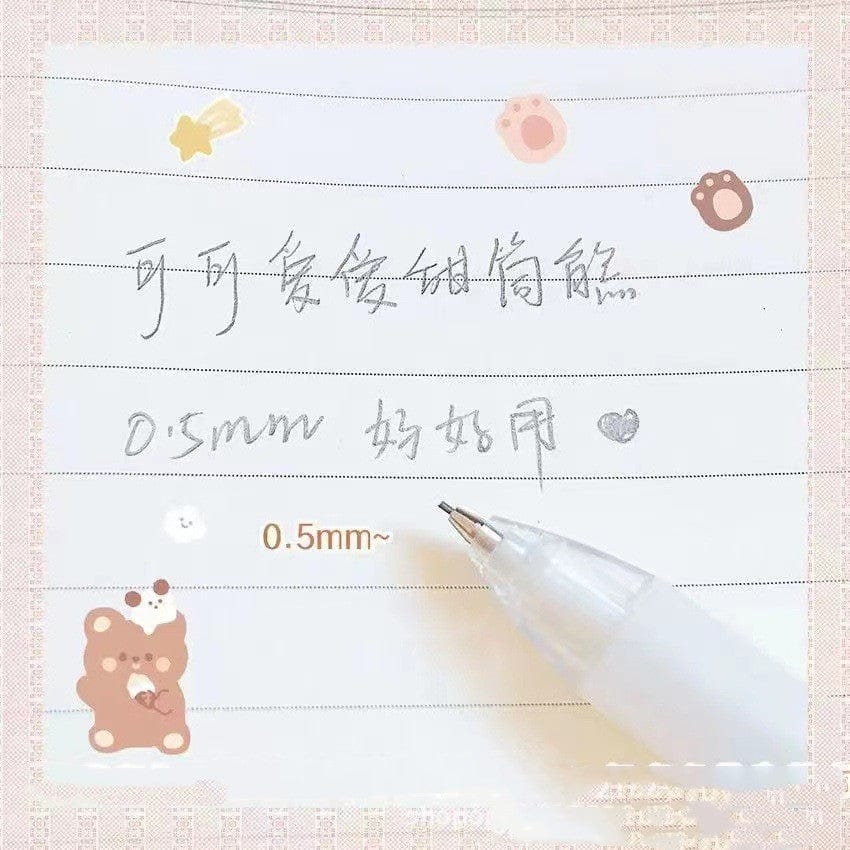 可可爱爱甜筒熊
0.5mm 好好用
0.5mm~